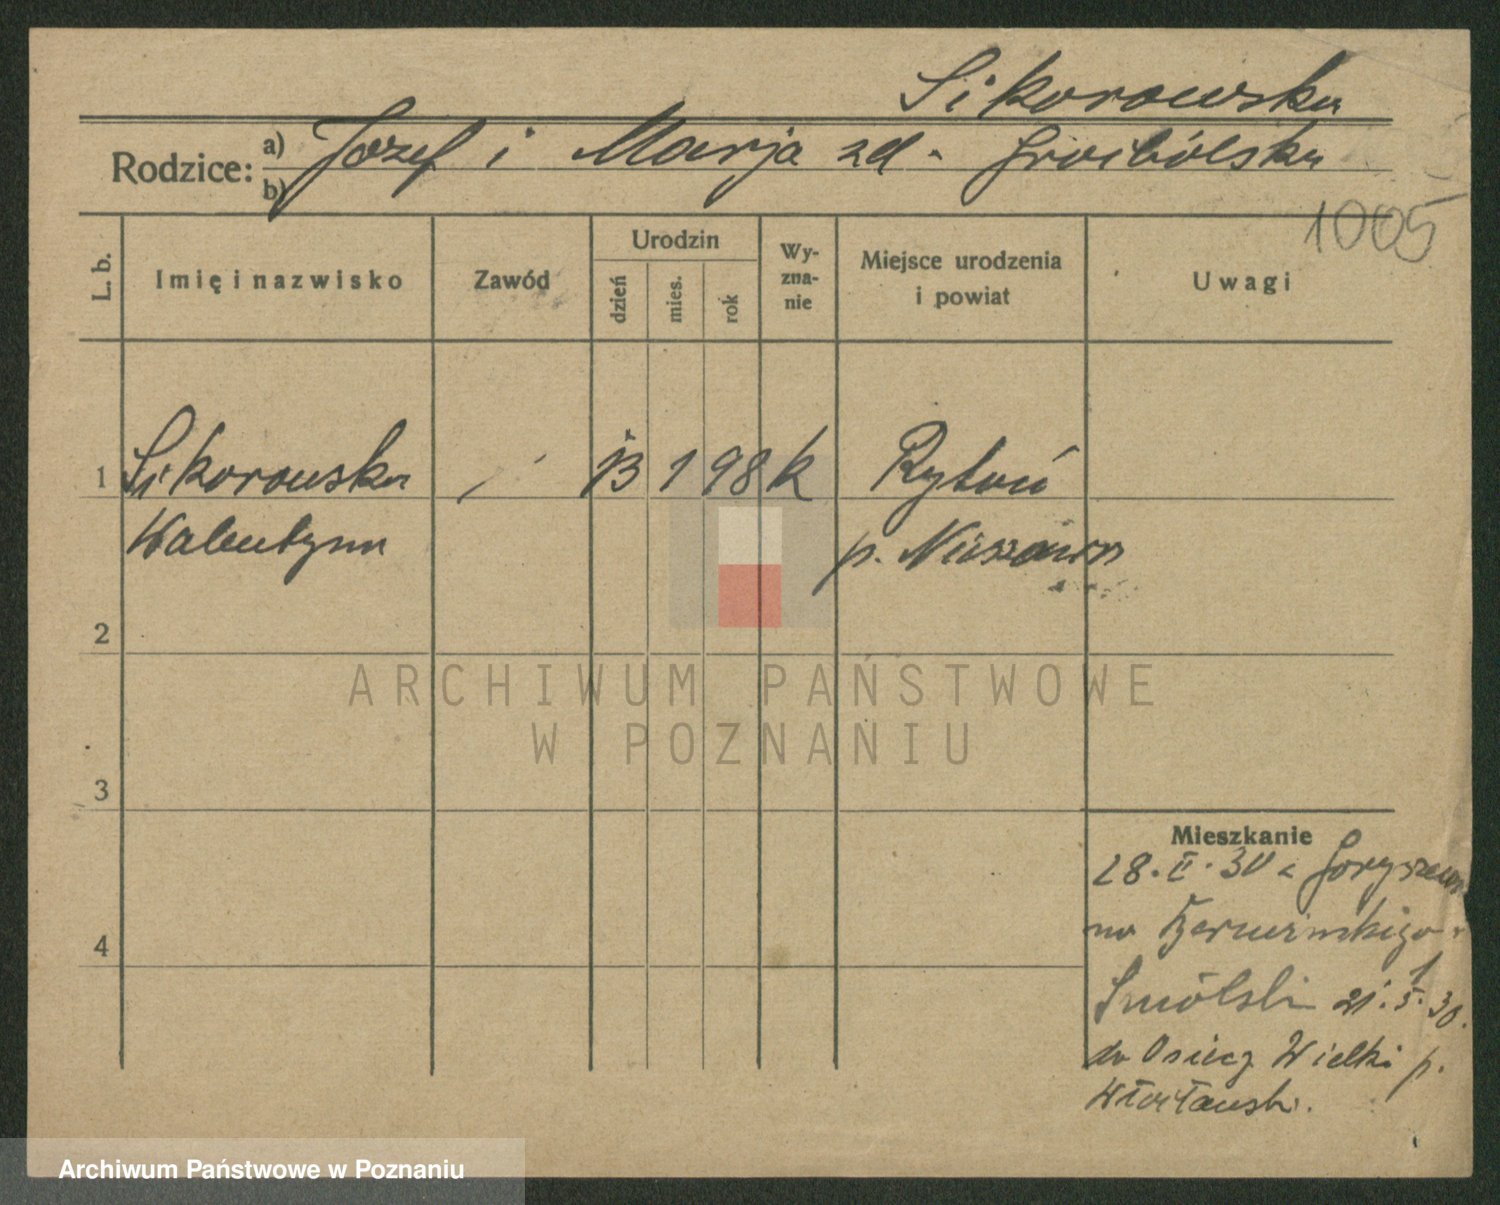 Sikorowska
Rodzice: a) Józef i Marja zd.
b)
1005
L. b. Imię i nazwisko Zawód Urodzin Wy-zna-nie Miejsce urodzenia i powiat Uwagi
dzień mies. rok
1 Sikorowska 13 1 98 k Rytwiń
Walentyna p. Nieszawa
2
ARCHIWUM PAŃSTWOWE
W POZNANIU
3
Mieszkanie
28.II.30 z
na
4
Smólsk 21.5.30.
do Osięcz Wielki p.
Włocławski.
Archiwum Państwowe w Poznaniu